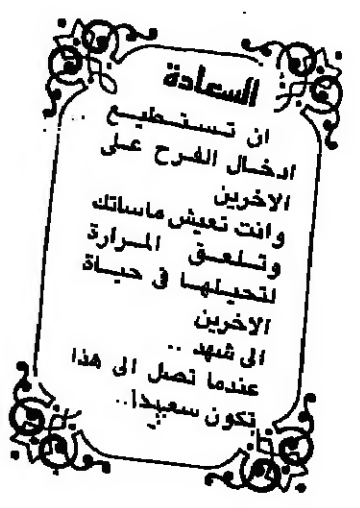 السعادة
ان تستطيع
ادخال الفرح على
الاخرين
وانت تعيش ماساتك
وتلعق المرارة
لتحيلها في حياة
الاخرين
الى شهد ..
عندما تصل الى هذا
تكون سعيدا ..